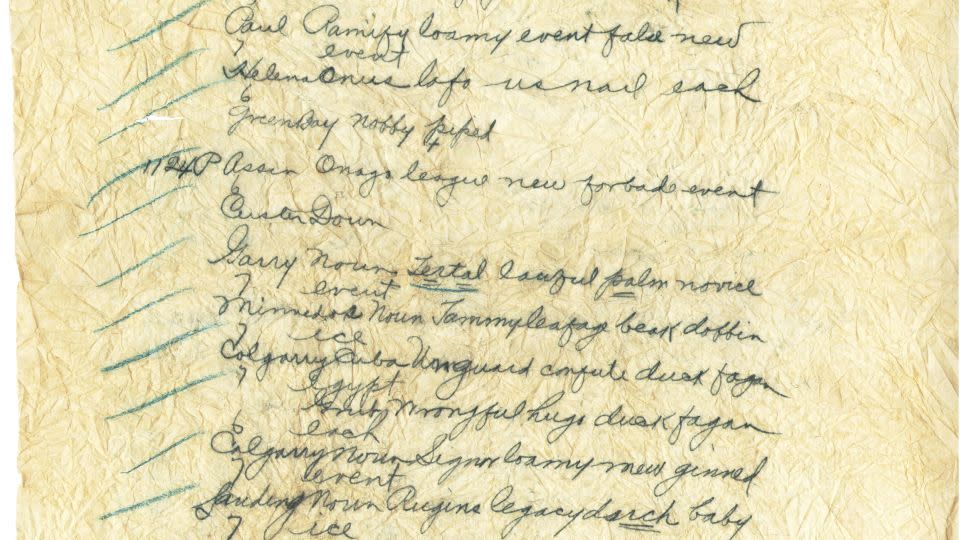 Paul Ramify loamy event false new
7 event
Helena Onus lofo us nail each
6
GreenBay nobby piped
1124P Assin Onago league new forbade event
6
Custer Down
Garry Noun Tertal lawful palm novice
7 event
Minnedos Noun Jammy leafage beak dobbin
7 ice
Calgarry Cuba Unguard confute duck fagan
7 Egypt
Grub Wrongful hugo duck fagan
6 each
Calgarry Noun Signor loamy new ginned
7 event
Landing Noun Rugins legacy duck baby
7 ice